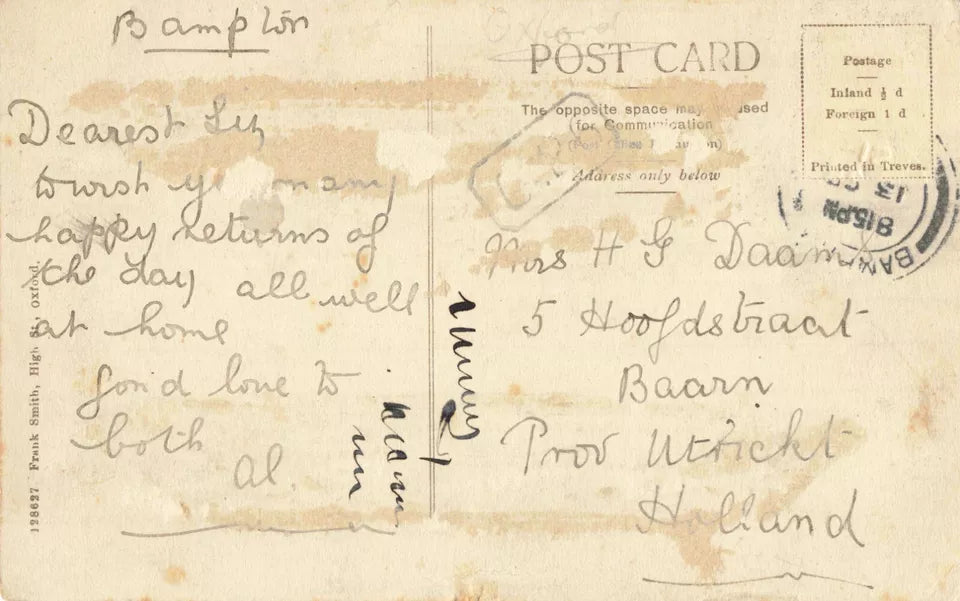 Bampton
Dearest Liz
to wish yo many
happy returns of
the day all well
at home
fond love to
both
Al.
128627 Frank Smith, High St., Oxford.
Oxford
POST CARD
The opposite space may used
(for Communication
(Post
Address only below
Postage
Inland ½ d
Foreign 1 d
Printed in Treves.
8 15 PM
13
BAM
Mrs H G Daam
5 Hoofdstraat
Baarn
Prov Utrickt
Holland